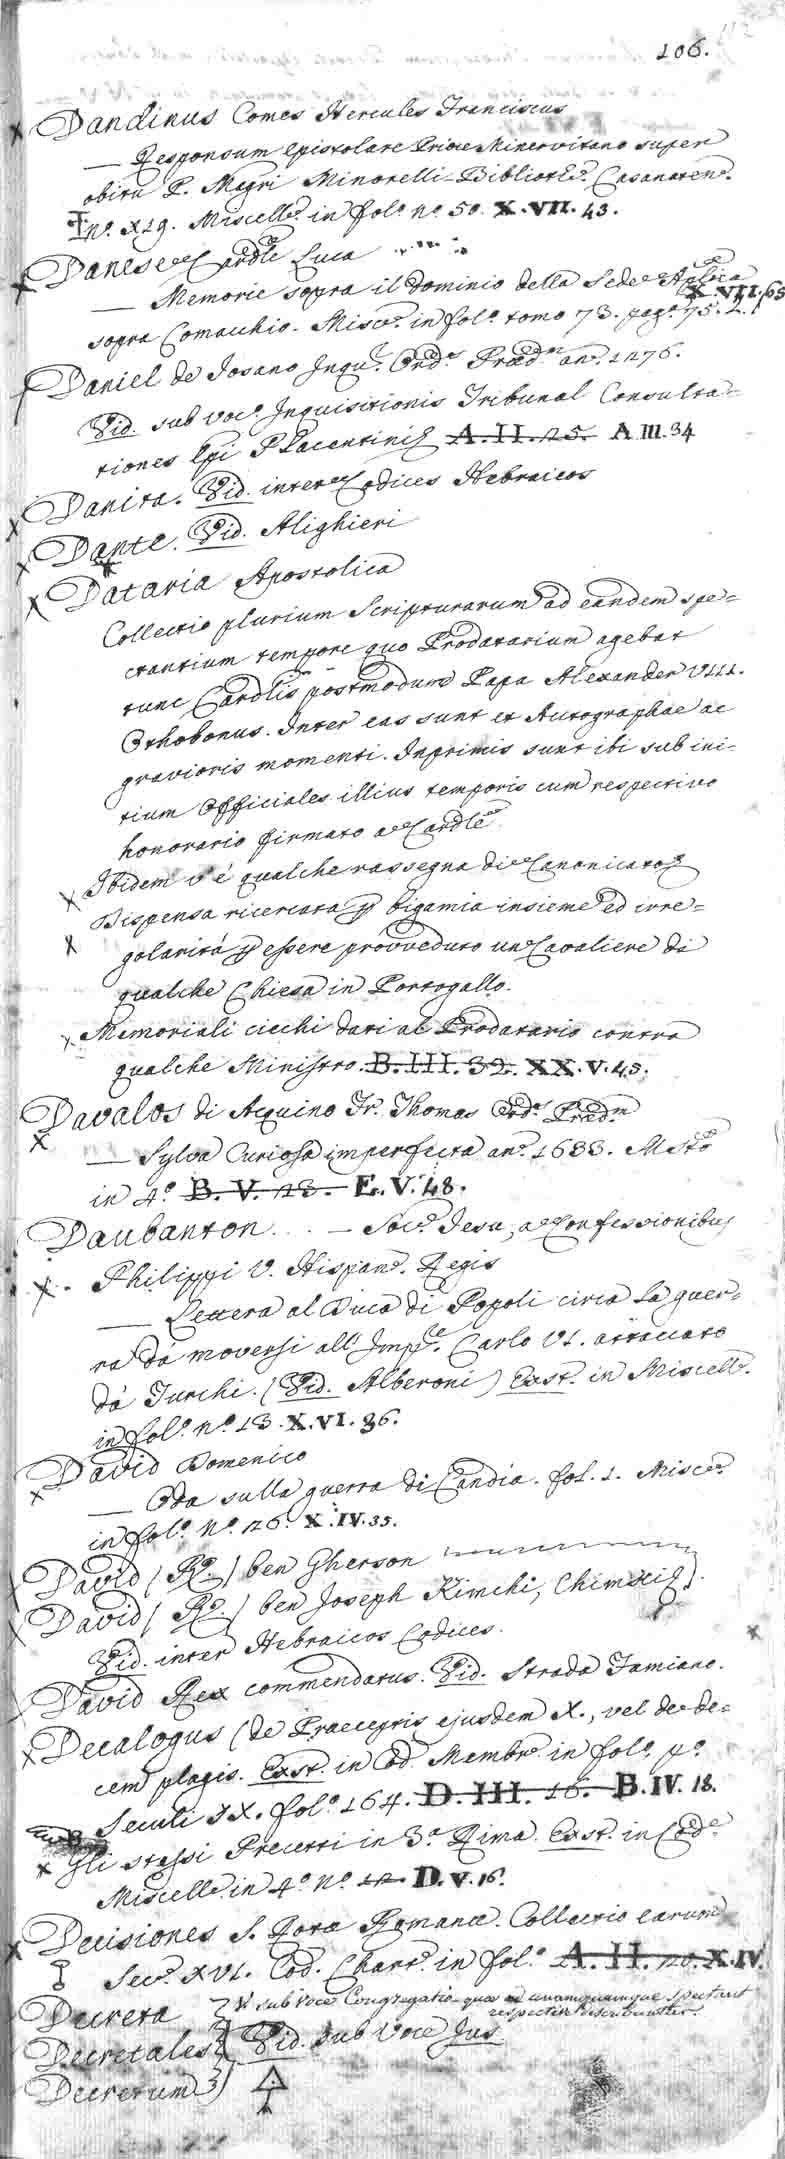 106.
Dandinus Comes Hercules Franciscus
— Responsum epistolare Minervitano super
obitu P. Magri Minorelli Biblioth. Casanaten.
nº. X29. Miscell. in folº nº. 50. X.VII.43.
Danese Cardle Luca
— Memorie sopra il dominio della Sede Aplica
sopra Comacchio. Misc. in folº tomo 73. pag. 75. 2. X.VII.65
Daniel de Iosano Inqu. Ord. Præd. an. 1276.
Vid. sub voc. Inquisitionis Tribunal Consulta=
tiones Epi Placentini A.II.25. A III.34
Danita. Vid. inter Codices Hebraicos
Dante. Vid. Alighieri
Dataria Apostolica
Collectio plurium Scripturarum ad eandem spe=
ctantium tempore quo Prodatarium agebat
tunc Cardlis postmodum Papa Alexander VIII.
Othobonus. Inter eas sunt et Autographae ac
gravioris momenti. Inprimis sunt ibi sub ini=
tium Officiales illius temporis cum respectivo
honorario firmato a Cardle
Ibidem v'é qualche rassegna di Canonicato
Dispensa ricercata p bigamia insieme ed irre=
golaritá p essere provveduto un Cavaliere di
qualche Chiesa in Portogallo.
Memoriali ciechi dati al Prodatario contra
qualche Ministro. B.III.32. XX.V.45.
Davalos di Acquino Fr. Thomas Ord. Præd.
— Sylva Curiosa imperfecta an. 1633. Msto
in 4º B.V.23. E.V.48.
Daubanton . . . — Soc. Iesu, a Confessionibus
Philippi V. Hispan. Regis
— Lettera al Duca di Popoli circa la guer=
ra dá moversi all'Imp. Carlo VI. attaccato
dá Turchi. (Vid. Alberoni) Exst. in Miscell.
in folº nº 13. X.VI.36.
David Domenico
— Oda sulla guerra di Candia. fol. 1. Misc.
in folº. Nº. 26. X.IV.35.
David (Rº.) ben Gherson
David (Rº.) ben Joseph Kimchi, Chimxi.
Vid. inter Hebraicos Codices.
David Rex commendatus. Vid. Strada Famiano.
Decalogus (de Praeceptis ejusdem X., vel de de=
cem plagis. Exst. in Cod. Membr. in folº pº
Seculi IX. folº 164. D.III.16. B.IV.18.
Gli stessi Precetti in 3ª Rima. Exst. in Code
Miscell. in 4º Nº 12 D.V.16.
Decisiones S. Rotæ Romanæ. Collectio earum
Sec. XVI. Cod. Chart. in folº A.II.20. X.IV.
Decreta V. sub voce Congregatio quæ ad unamquamque spectant
respective describuntur.
Decretales Vid. sub voce Jus
Decretum